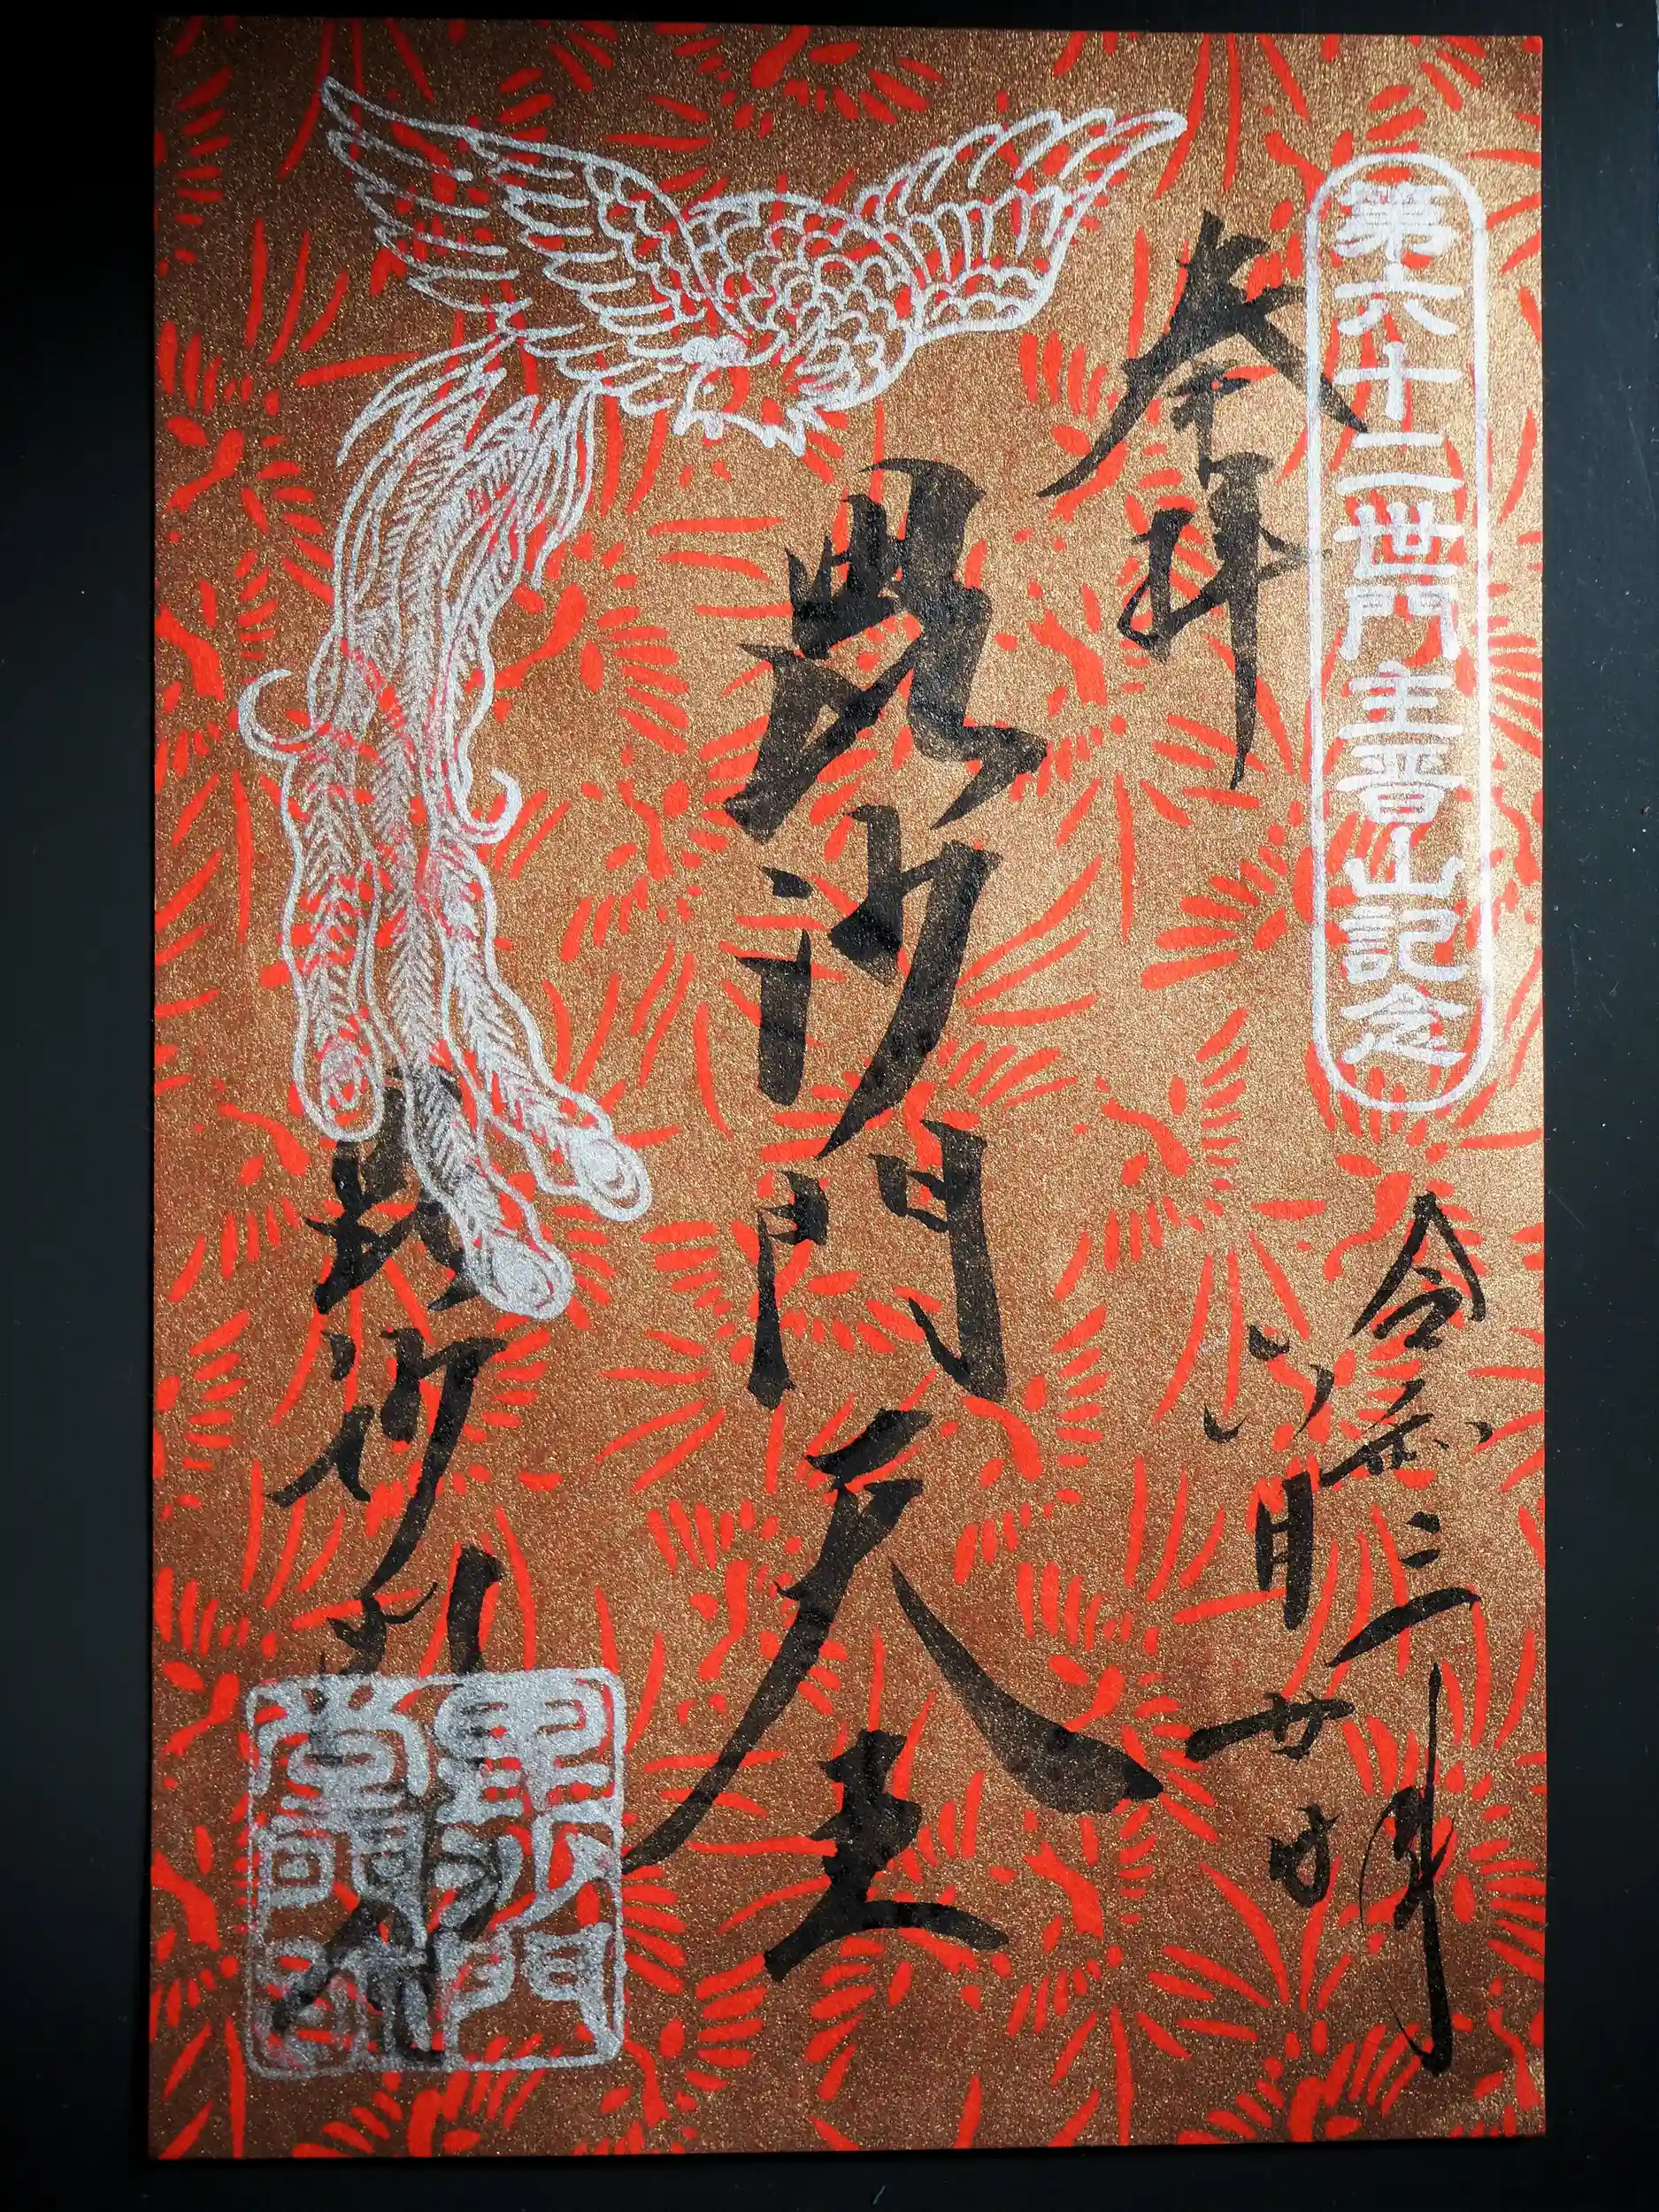 第六十二世門主晋山記念
奉拝
令和三年
月廿日
毘沙門天王
毘沙門堂
毘沙門
堂